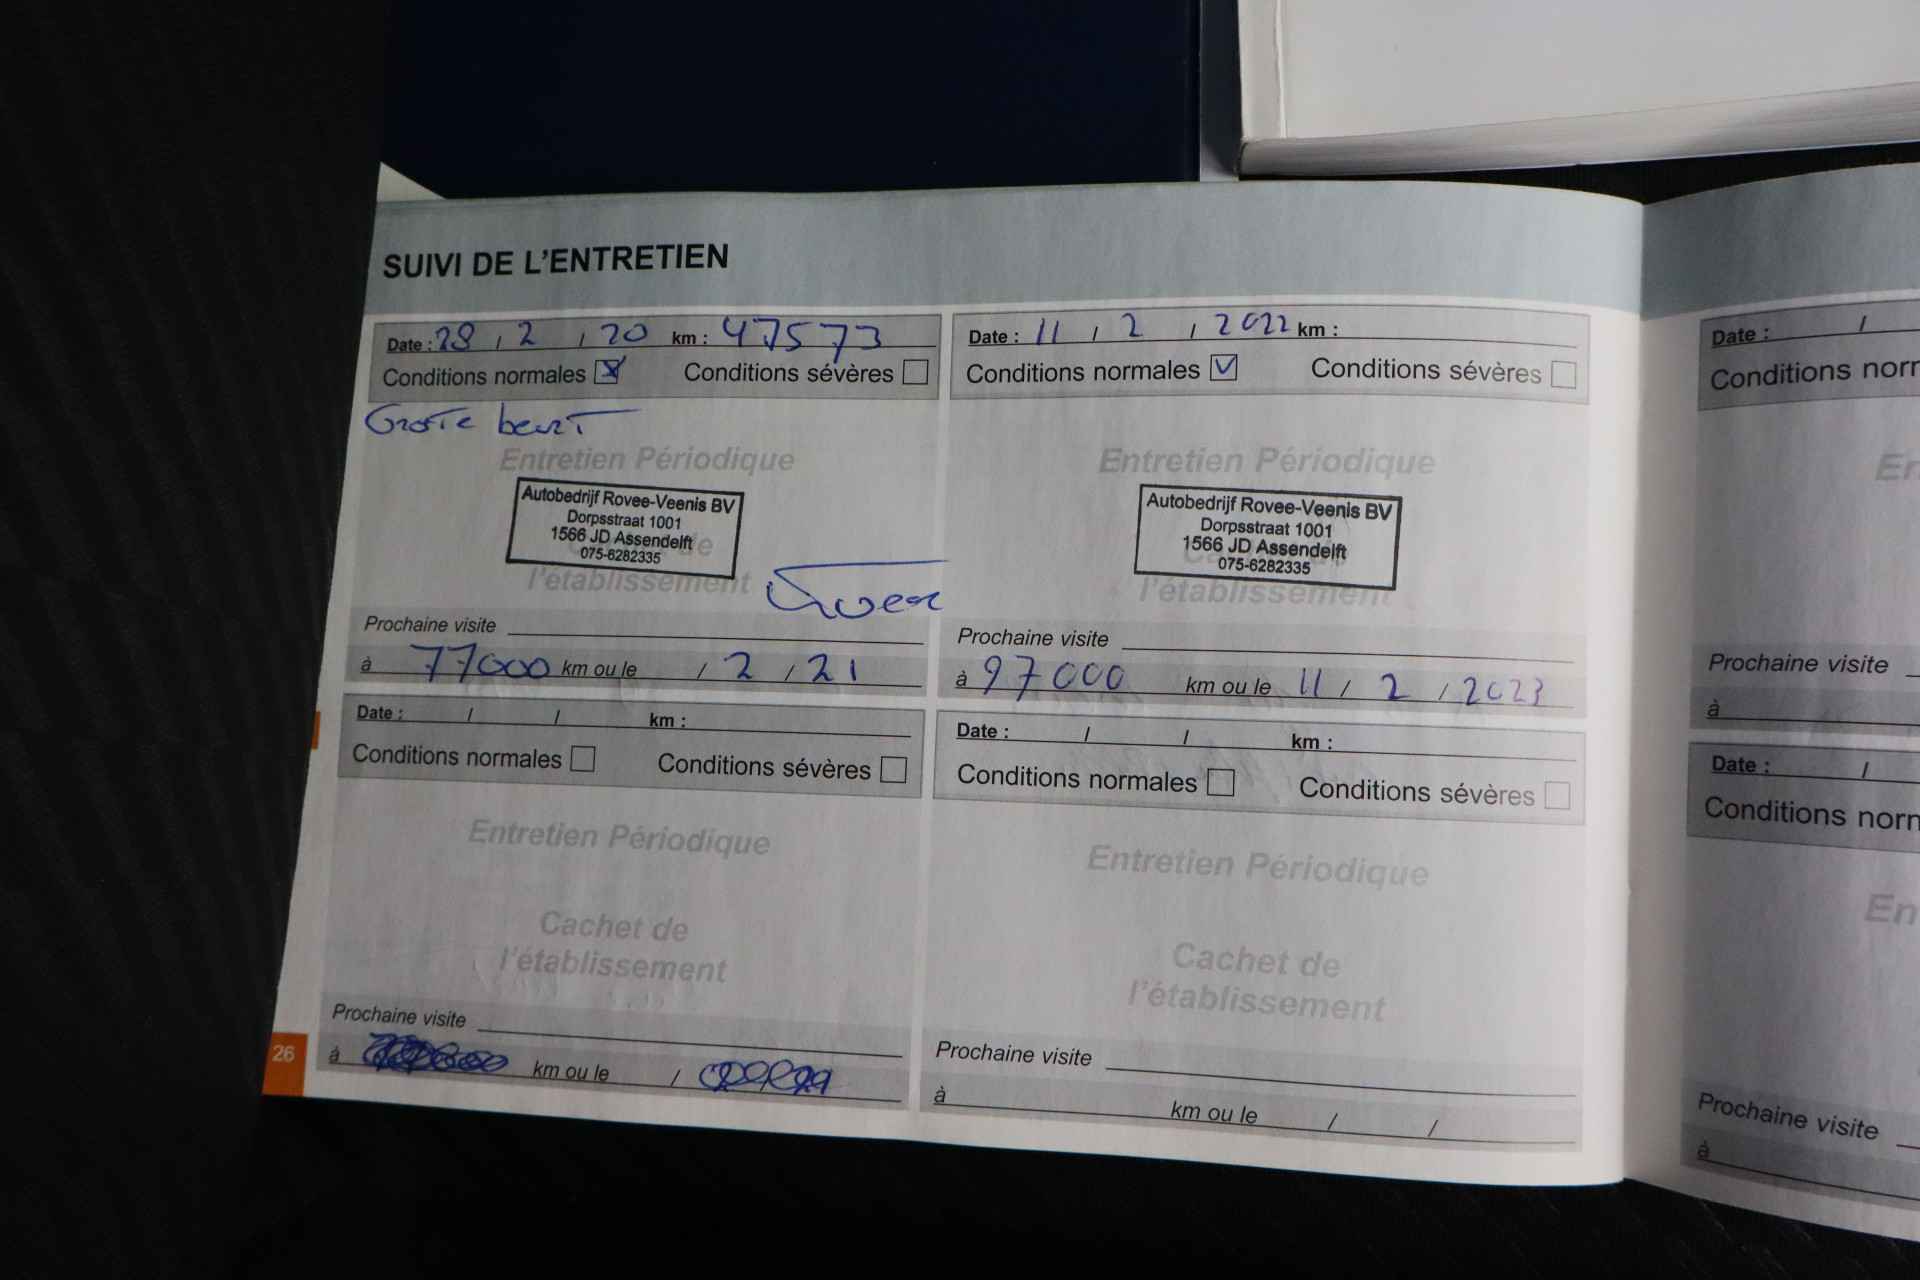 SUIVI DE L'ENTRETIEN
Date : 28 / 2 / 20 km : 47573
Conditions normales Conditions sévères
Grote beurt
Entretien Périodique
Autobedrijf Rovee-Veenis BV
Dorpsstraat 1001
1566 JD Assendelft
075-6282335
l'établissement
Prochaine visite
à 77000 km ou le / 2 / 21
Date : 11 / 2 / 2022 km :
Conditions normales Conditions sévères
Entretien Périodique
Autobedrijf Rovee-Veenis BV
Dorpsstraat 1001
1566 JD Assendelft
075-6282335
l'établissement
Prochaine visite
à 97000 km ou le 11 / 2 / 2023
Date : / / km :
Conditions normales Conditions sévères
Entretien Périodique
Cachet de
l'établissement
Prochaine visite
à km ou le /
Date : / / km :
Conditions normales Conditions sévères
Entretien Périodique
Cachet de
l'établissement
Prochaine visite
à km ou le / /
26
Date : /
Conditions norr
En
Prochaine visite
à
Date : /
Conditions norn
En
Prochaine visite
à